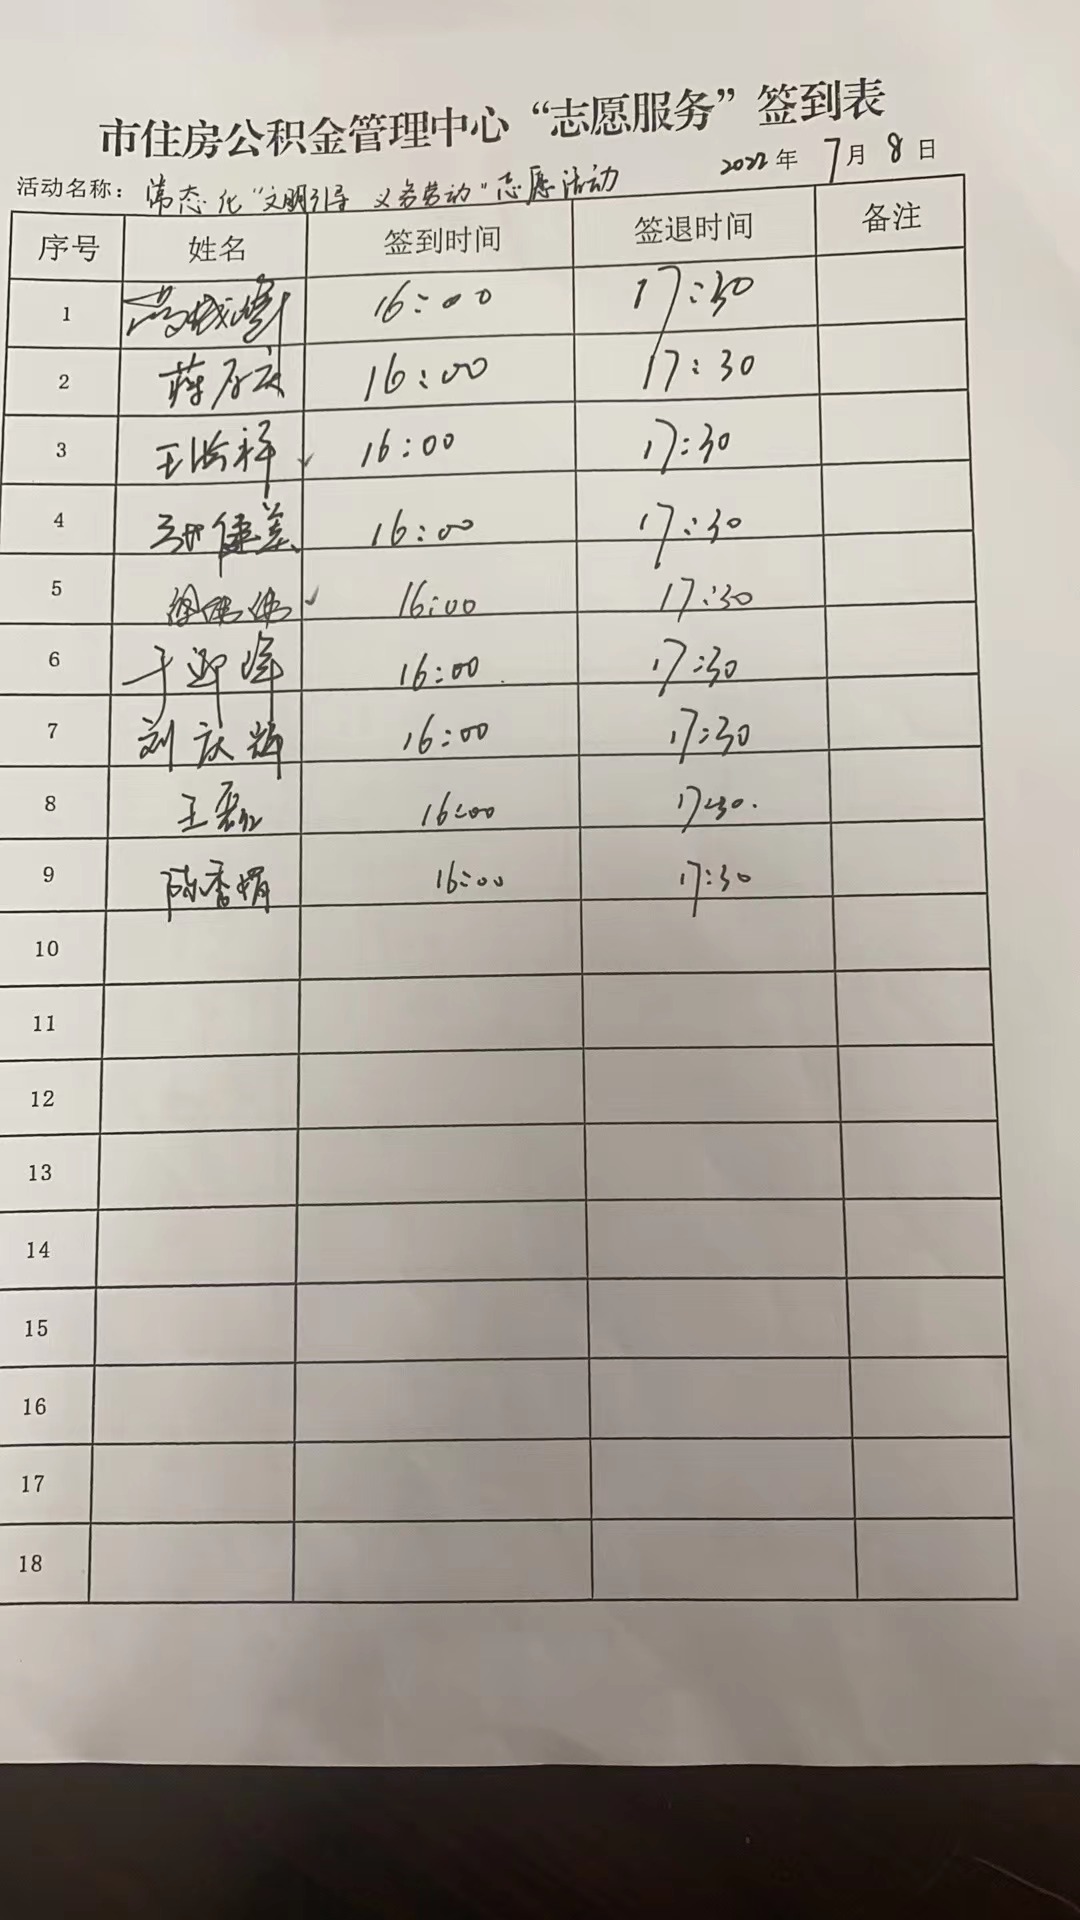 市住房公积金管理中心“志愿服务”签到表
2022年 7月 8日
活动名称：常态化“文明引导 义务劳动”志愿活动
序号 姓名 签到时间 签退时间 备注
1 16:00 17:30
2 蒋 16:00 17:30
3 王洪祥 16:00 17:30
4 健 16:00 17:30
5 16:00 17:30
6 于迎峰 16:00 17:30
7 刘庆辉 16:00 17:30
8 王磊 16:00 17:30
9 陈香娟 16:00 17:30
10
11
12
13
14
15
16
17
18